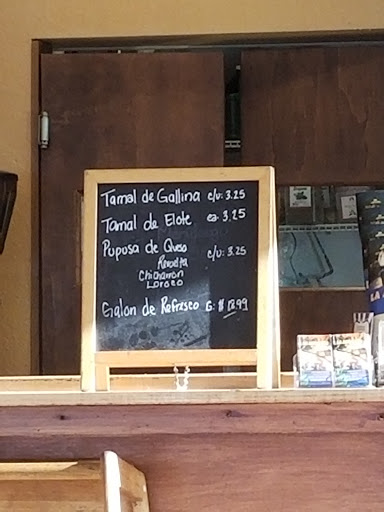 Tamal de Gallina c/u: 3.25
Tamal de Elote ea. 3.25
Pupusa de Queso c/u: 3.25
Revuelta
Chicharron
Loroco
Galon de Refresco G: $ 12.99